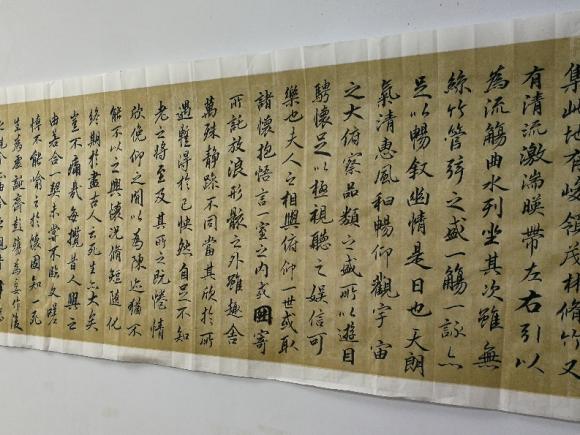 集此地有峻領茂林脩竹又
有清流激湍暎帶左右引以
為流觴曲水列坐其次雖無
絲竹管弦之盛一觴一詠亦
足以暢叙幽情是日也天朗
氣清惠風和暢仰觀宇宙
之大俯察品類之盛所以遊目
騁懷足以極視聽之娛信可
樂也夫人之相與俯仰一世或取
諸懷抱悟言一室之內或因寄
所託放浪形骸之外雖趣舍
萬殊靜躁不同當其欣於所
遇蹔得於己快然自足不知
老之將至及其所之既惓情
欣俛仰之間以為陳迹猶不
能不以之興懷況脩短隨化
終期於盡古人云死生亦大矣
豈不痛哉每攬昔人興
由若合一契未嘗不臨文嗟
悼不能喻之於懷固知一死
生為虛誕齊彭殤為妄作後